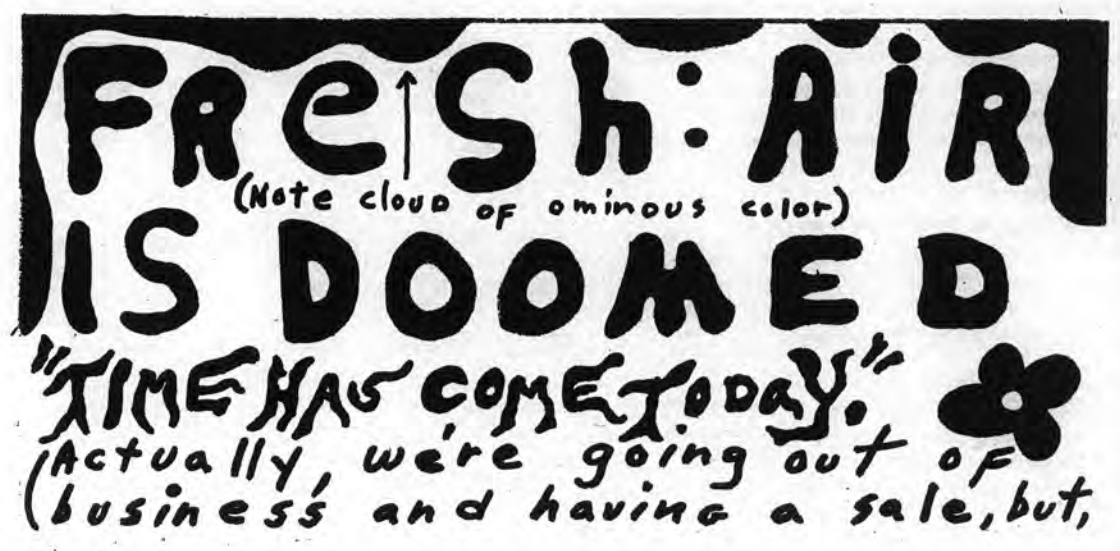 FReSh: AiR
(Note cloud of ominous color)
IS DOOMED
"TIME HAS COME TODAY."
(Actually, we're going out of
business and having a sale, but,